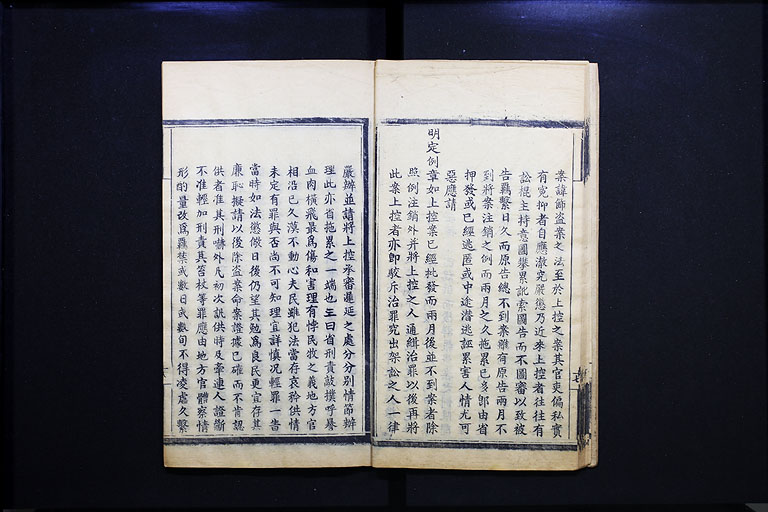 案諱飾盜案之法至於上控之案其官吏偏私實
有寃抑者自應澈究嚴懲乃近來上控者往往有
訟棍主持意圖拏累訛索圖告而不圖審以致被
告羈繫日久而原告總不到案雖有原告兩月不
到將案注銷之例而兩月之久拖累已多卽由省
押發或已經逃匿或中途潛逃誣累害人情尤可
惡應請
明定例章如上控案已經批發而兩月後並不到案者除
照例注銷外并將上控之人通緝治罪以後再將
此案上控者亦卽駁斥治罪究出架訟之人一律
嚴辦並請將上控承審遲延之處分分別情節辦
理此亦省拖累之一端也三曰省刑責敲撲呼㬥
血肉橫飛最爲傷和害理有悖民牧之義地方官
相沿已久漠不動心夫民雖犯法當存哀矜供情
未定有罪與否尚不可知理宜詳慎况輕罪一眚
當時如法懲儆日後仍望其勉爲良民更宜存其
廉恥擬請以後除盜案命案證據已確而不肯認
供者准其刑嚇外凡初次訊供時及牽連人證斷
不准輕加刑責其笞杖等罪應由地方官體察情
形酌量改爲羈禁或數日或數旬不得凌虐久繫